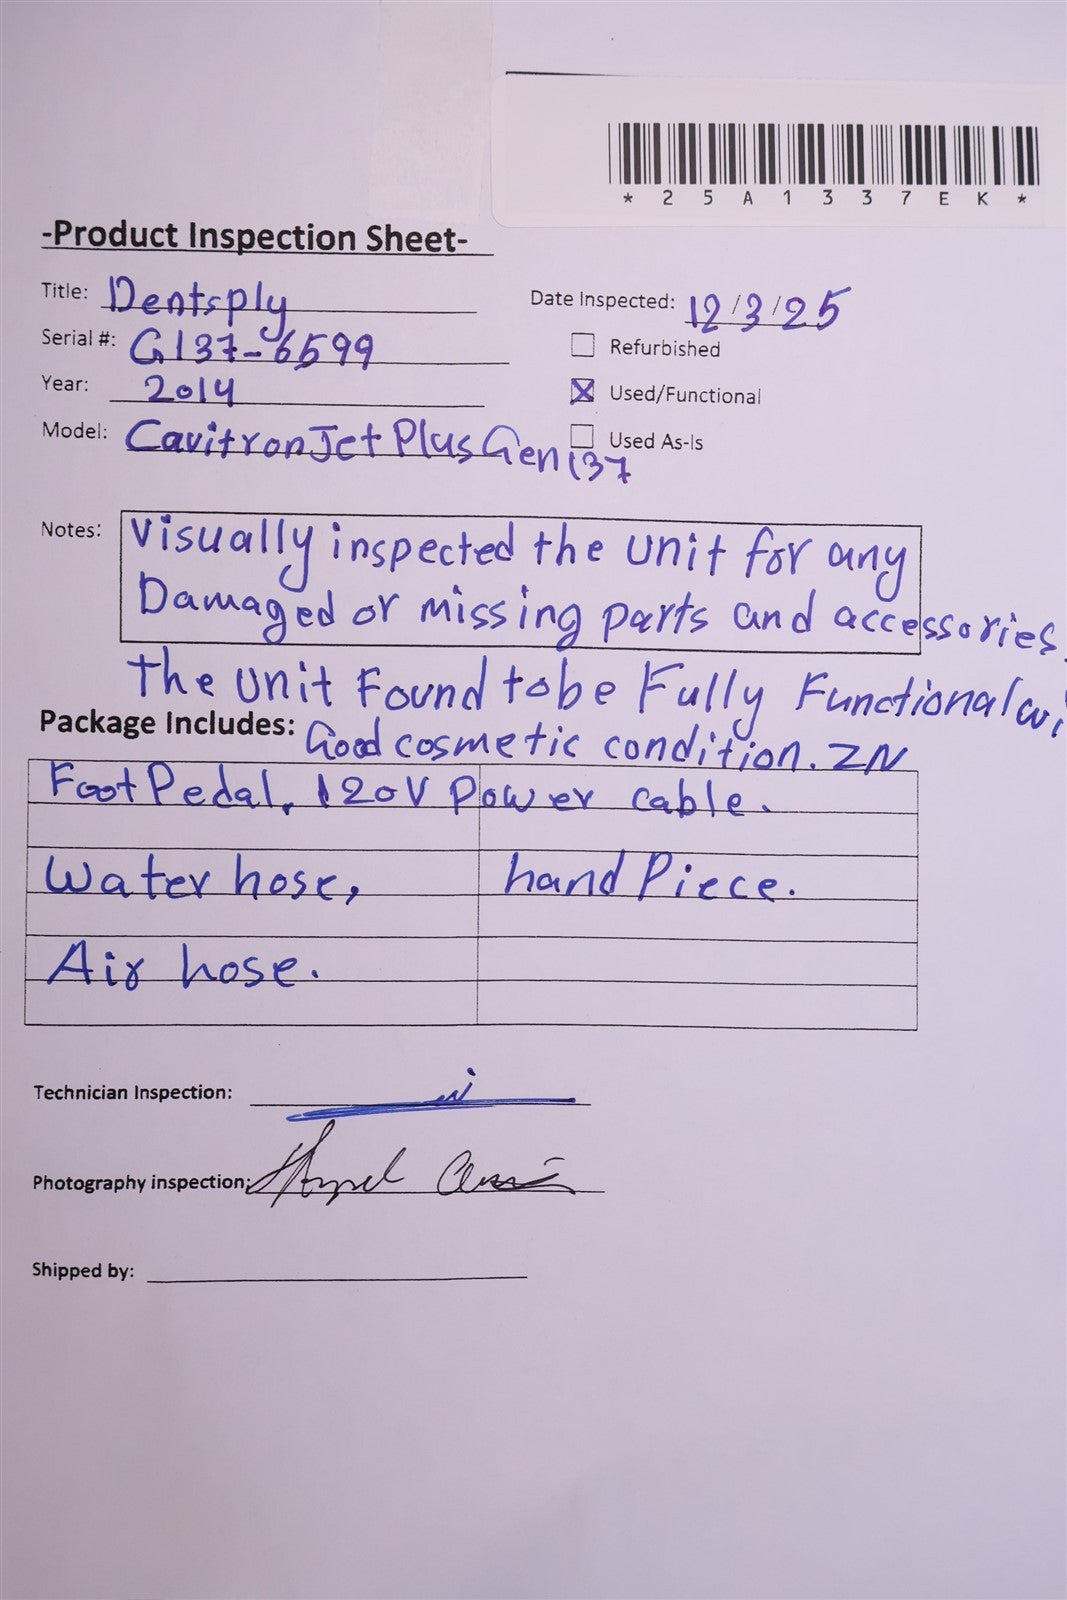 *25A1337EK*
-Product Inspection Sheet-
Title: Dentsply
Date Inspected: 12/3/25
Serial #: G137-6599
Refurbished
Year: 2014
Used/Functional
Model: Cavitron Jet Plus Gen 137
Used As-Is
Notes: Visually inspected the unit for any
Damaged or missing parts and accessories.
The unit Found to be Fully Functional wi
Package Includes: Good cosmetic condition. ZN
Foot Pedal, 120V Power cable.
Water hose, hand Piece.
Air hose.
Technician Inspection:
Photography inspection:
Shipped by: